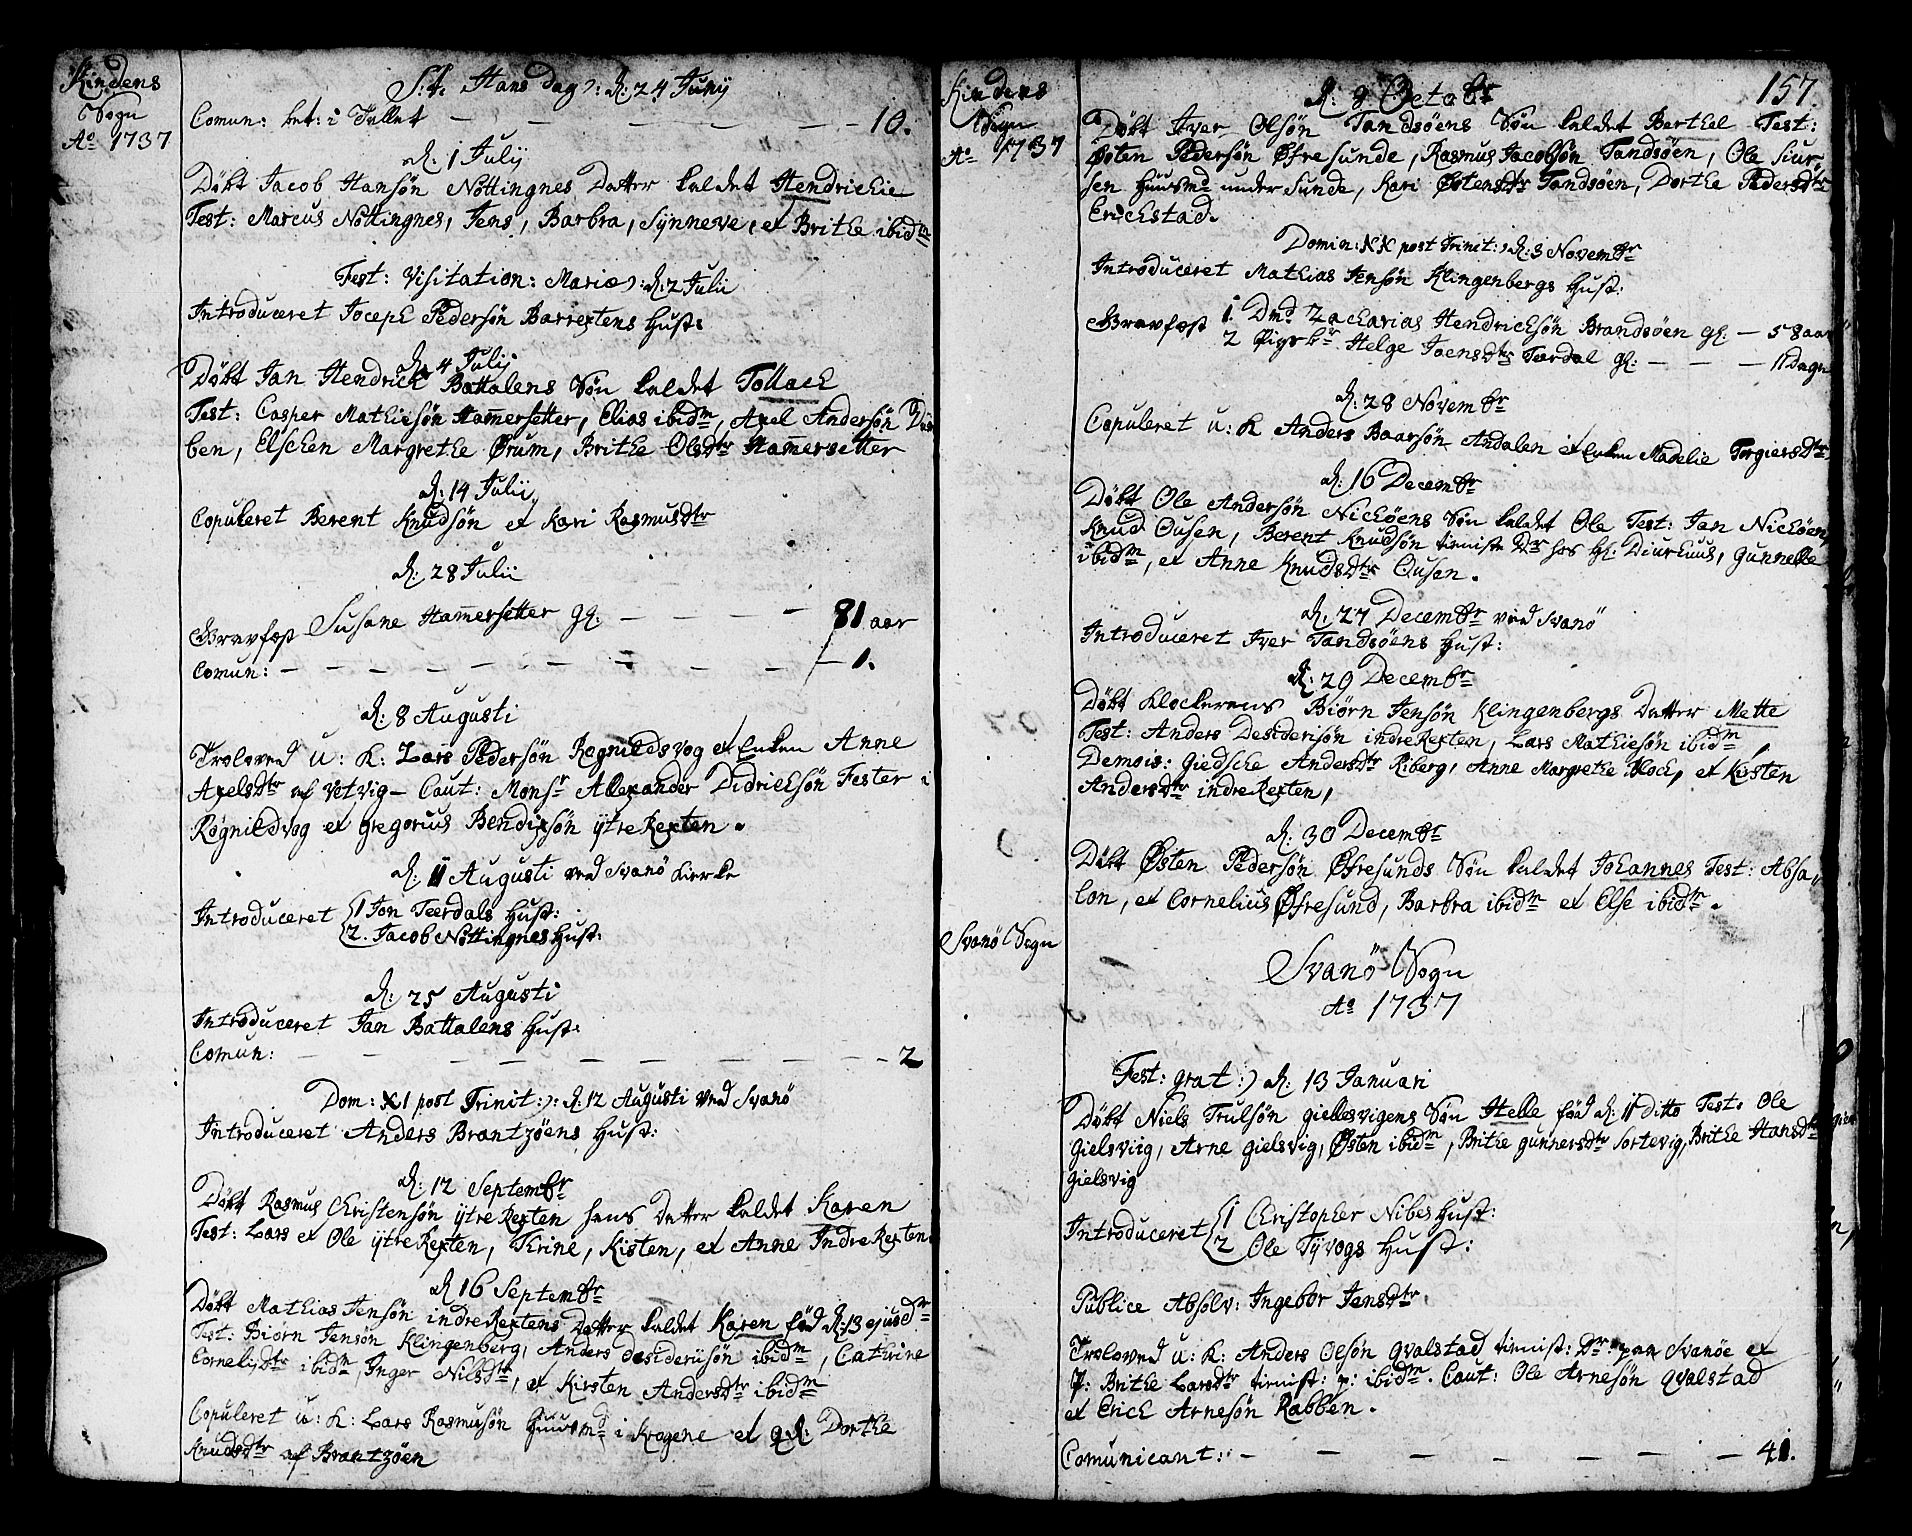 Kindens
Sogn
Ao 1737
S:t. Hans dag: d: 24 Junij
Comun: bet: i Tallet — — — — — 10.
d: 1 Julij
Døbt Jacob Hansøn Nøttingnes Datter kaldet Hendrichie
Test: Marcus Nøttingnes, Jens, Barbra, Synneve, et Brithe ibidm
Fest: Visitation: Mariæ: d: 2 Julii
Introduceret Joceph Pedersøn Barrextens Hust:
d: 4 Julij
Døbt Jan Hendrich Battalens Søn kaldet Tollach
Test: Casper Mathiesøn Hamersetter, Elias ibidm, Axel Andersøn
ben, Elschen Margrethe Ørum, Brithe Olsdtr Hamersetter
d: 14 Julii
Copuleret Berent Knudsøn et Kari Rasmusdtr
d: 28 Julii
Gravfæst Susane Hamersetter gl: — — — — 81 aar
Comun: — — — — — — — — — 1.
d: 8 Augusti
Troloved u: K: Lars Pedersøn Rognildsvog et Enken Anne
Axelsdtr af Vetvig — Caut: Monsr Allexander Didrichsøn Fester i
Rognildvog et Gregorius Bendixsøn ytre Rexten.
d: 11 Augusti ved Svanø Kierke
Introduceret 1 Jon Teerdals Hust:
2. Jacob Nøttingnes Hust:
d: 25 Augusti
Introduceret Jan Battalens Hust:
Comun: — — — — — — — — 2
Dom: X1 post Trinit: d: 12 Augusti ved Svanø
Introduceret Anders Brantzøens Hust:
d: 12 Septembr
Døbt Rasmus Christensøn ytre Rexten hans Datter kaldet Karen
Test: Lars et Ole ytre Rexten, Thrine, Kisten, et Anne Indre Rexten
d 16 Septembr
Døbt Mathias Jensøn indre Rextens Datter kaldet Karen fød d: 13 ejusdm
Test: Biørn Jensøn Klingenberg, Anders desideriisøn ibidm, Cathrine
Cornelisdtr ibidm, Inger Nilsdtr, et Kirsten Andersdtr ibidm
Copuleret u: K: Lars Rasmusøn Huusmd i Krogene et q.d: Dorthe
Knudsdtr af Brantzøen
Kindens
Sogn
Ao 1737
157.
d: 8 Octobr
Døbt Iver Olsøn Tandsøens Søn kaldet Berthel Test:
Østen Pedersøn Øfresunde, Rasmus Jacobsøn Tandsøen, Ole Siur-
sen Huusmd under Sunde, Kari Østensdtr Tandsøen, Dorthe Pedersdtr
Erichstad.
Domin: XX post Trinit: d: 3 Novembr
Introduceret Mathias Jensøn Klingenbergs Hust:
Gravfæst 1. Zacharias Hendrichsøn Brandsøen gl: — 58 aar
2 Helge Joensdtr Teerdal gl: — — — 11 Dage
d: 28 Novembr
Copuleret u: K Anders Baarsøn Andalen et Enken Madelie Torgiersdtr
d: 16 Decembr
Døbt Ole Andersøn Nichøens Søn kaldet Ole Test: Jan Nichøen,
Knud Ousen, Berent Knudsøn tieniste Dr hos Hl: Diurhuus, Gunnelle
ibidm, et Anne Knudsdtr Ousen.
d: 27 Decembr ved Svanø
Introduceret Iver Tandsøens Hust:
d: 29 Decembr
Døbt Klockerens Biørn Jensøn Klingenbergs Datter Mette
Test: Anders Desidersøn indre Rexten, Lars Mathiesøn ibidm
Demois: Giedsche Andersdtr Riberg, Anne Margrethe Block, et Kirsten
Andersdtr indre Rexten,
d: 30 Decembr
Døbt Østen Pedersøn Øfresunds Søn kaldet Johannes Test: Absa-
lon, et Cornelius Øfresund, Barbra ibidm et Else ibidm.
Svanø Sogn
Svanø Sogn
Ao 1737
Fest: grat: d: 13 Januari
Døbt Niels Trulsøn gielsvigens Søn Helle fød d: 11 ditto Test: Ole
Gielsviig, Arne gielsvig, Østen ibidm, Brithe gunnersdtr Sortevig, Brithe Hansdtr
Gielsvig
Introduceret 1 Christopher Nibes Hust:
2 Ole Tyvogs Hust:
Publice Absolv: Ingebor Jensdtr.
Troloved u: K: Anders Olsøn Qvalstad tienist: Dr: paa Svanøe et
p: Brithe Larsdtr tienist: p: ibidm. Caut: Ole Arnesøn Qvalstad
et Erich Arnesøn Rabben.
Comunicant: — — — — — — 41.